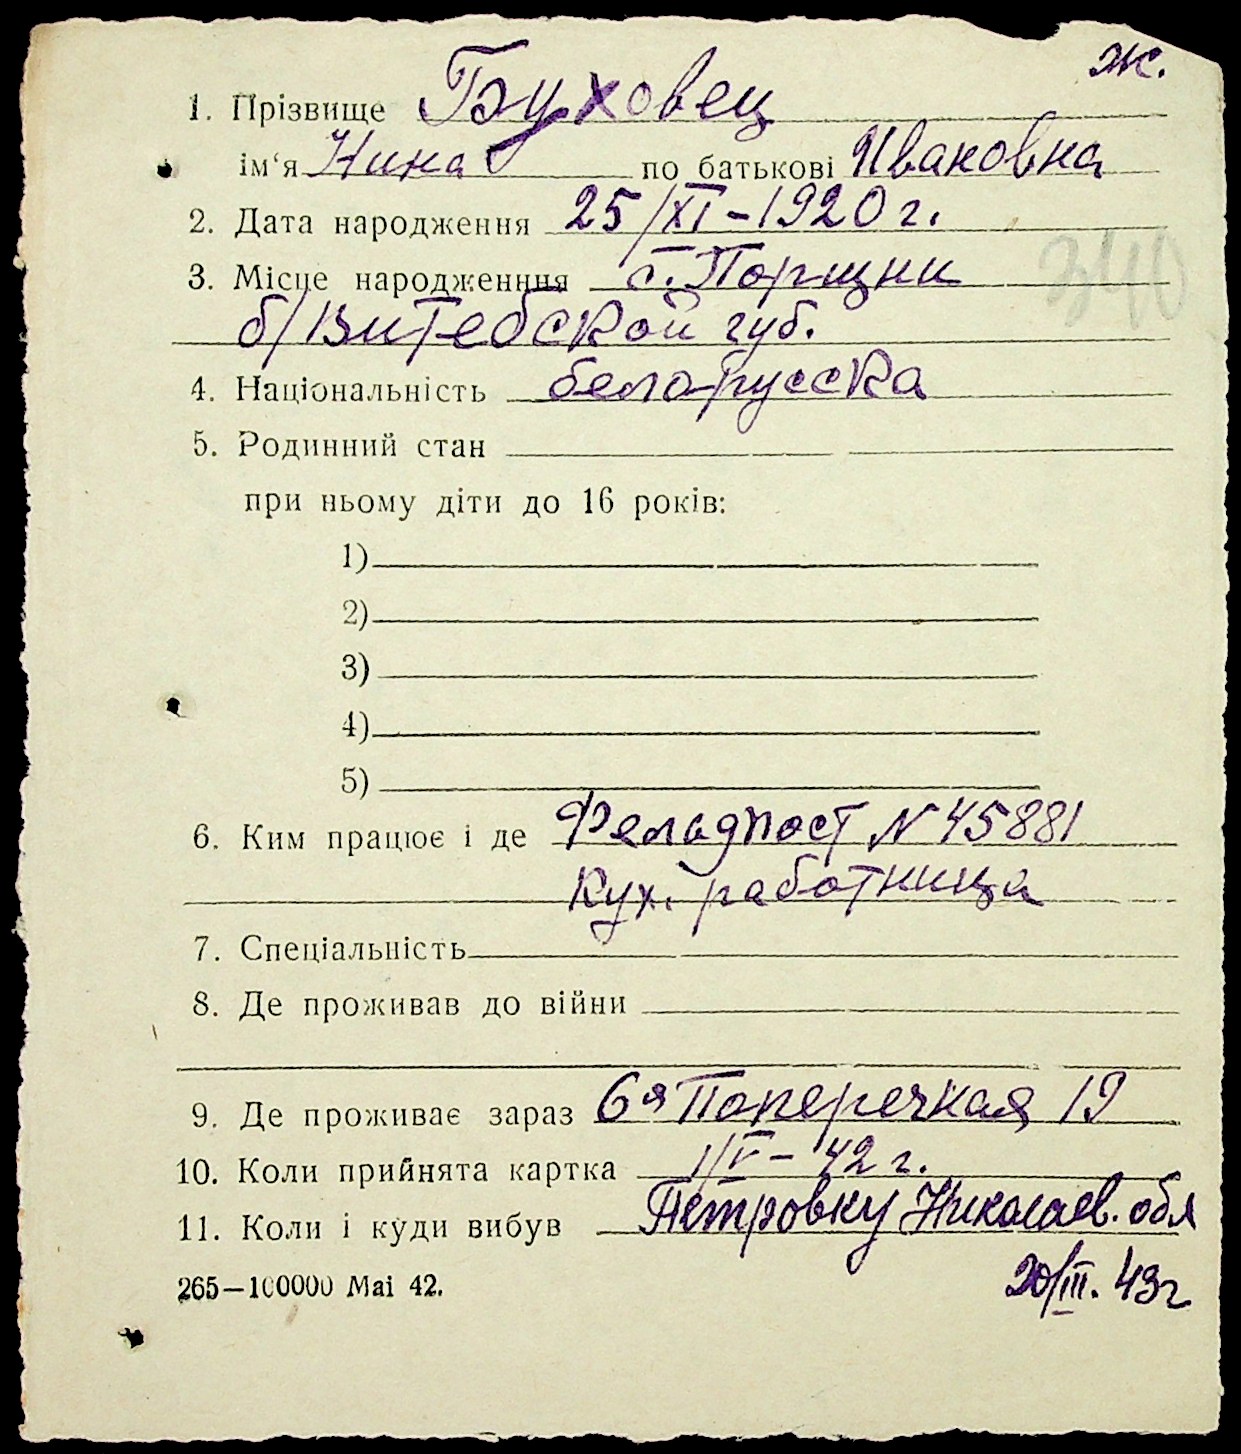 ж.
1. Прізвище Буховец
ім'я Нина по батькові Ивановна
2. Дата народження 25/XI-1920 г.
340
3. Місце народженння с. Порщни
б/Витебской губ.
4. Національність белорусска
5. Родинний стан
при ньому діти до 16 років:
1)
2)
3)
4)
5)
6. Ким працює і де Фельдпост N 45881
Кух. работница
7. Спеціальність
8. Де проживав до війни
9. Де проживає зараз 6я Поперечная 19
10. Коли прийнята картка 1/V-42 г.
11. Коли і куди вибув Петровку Николаев. обл
265—100000 Mai 42. 20/III. 43г